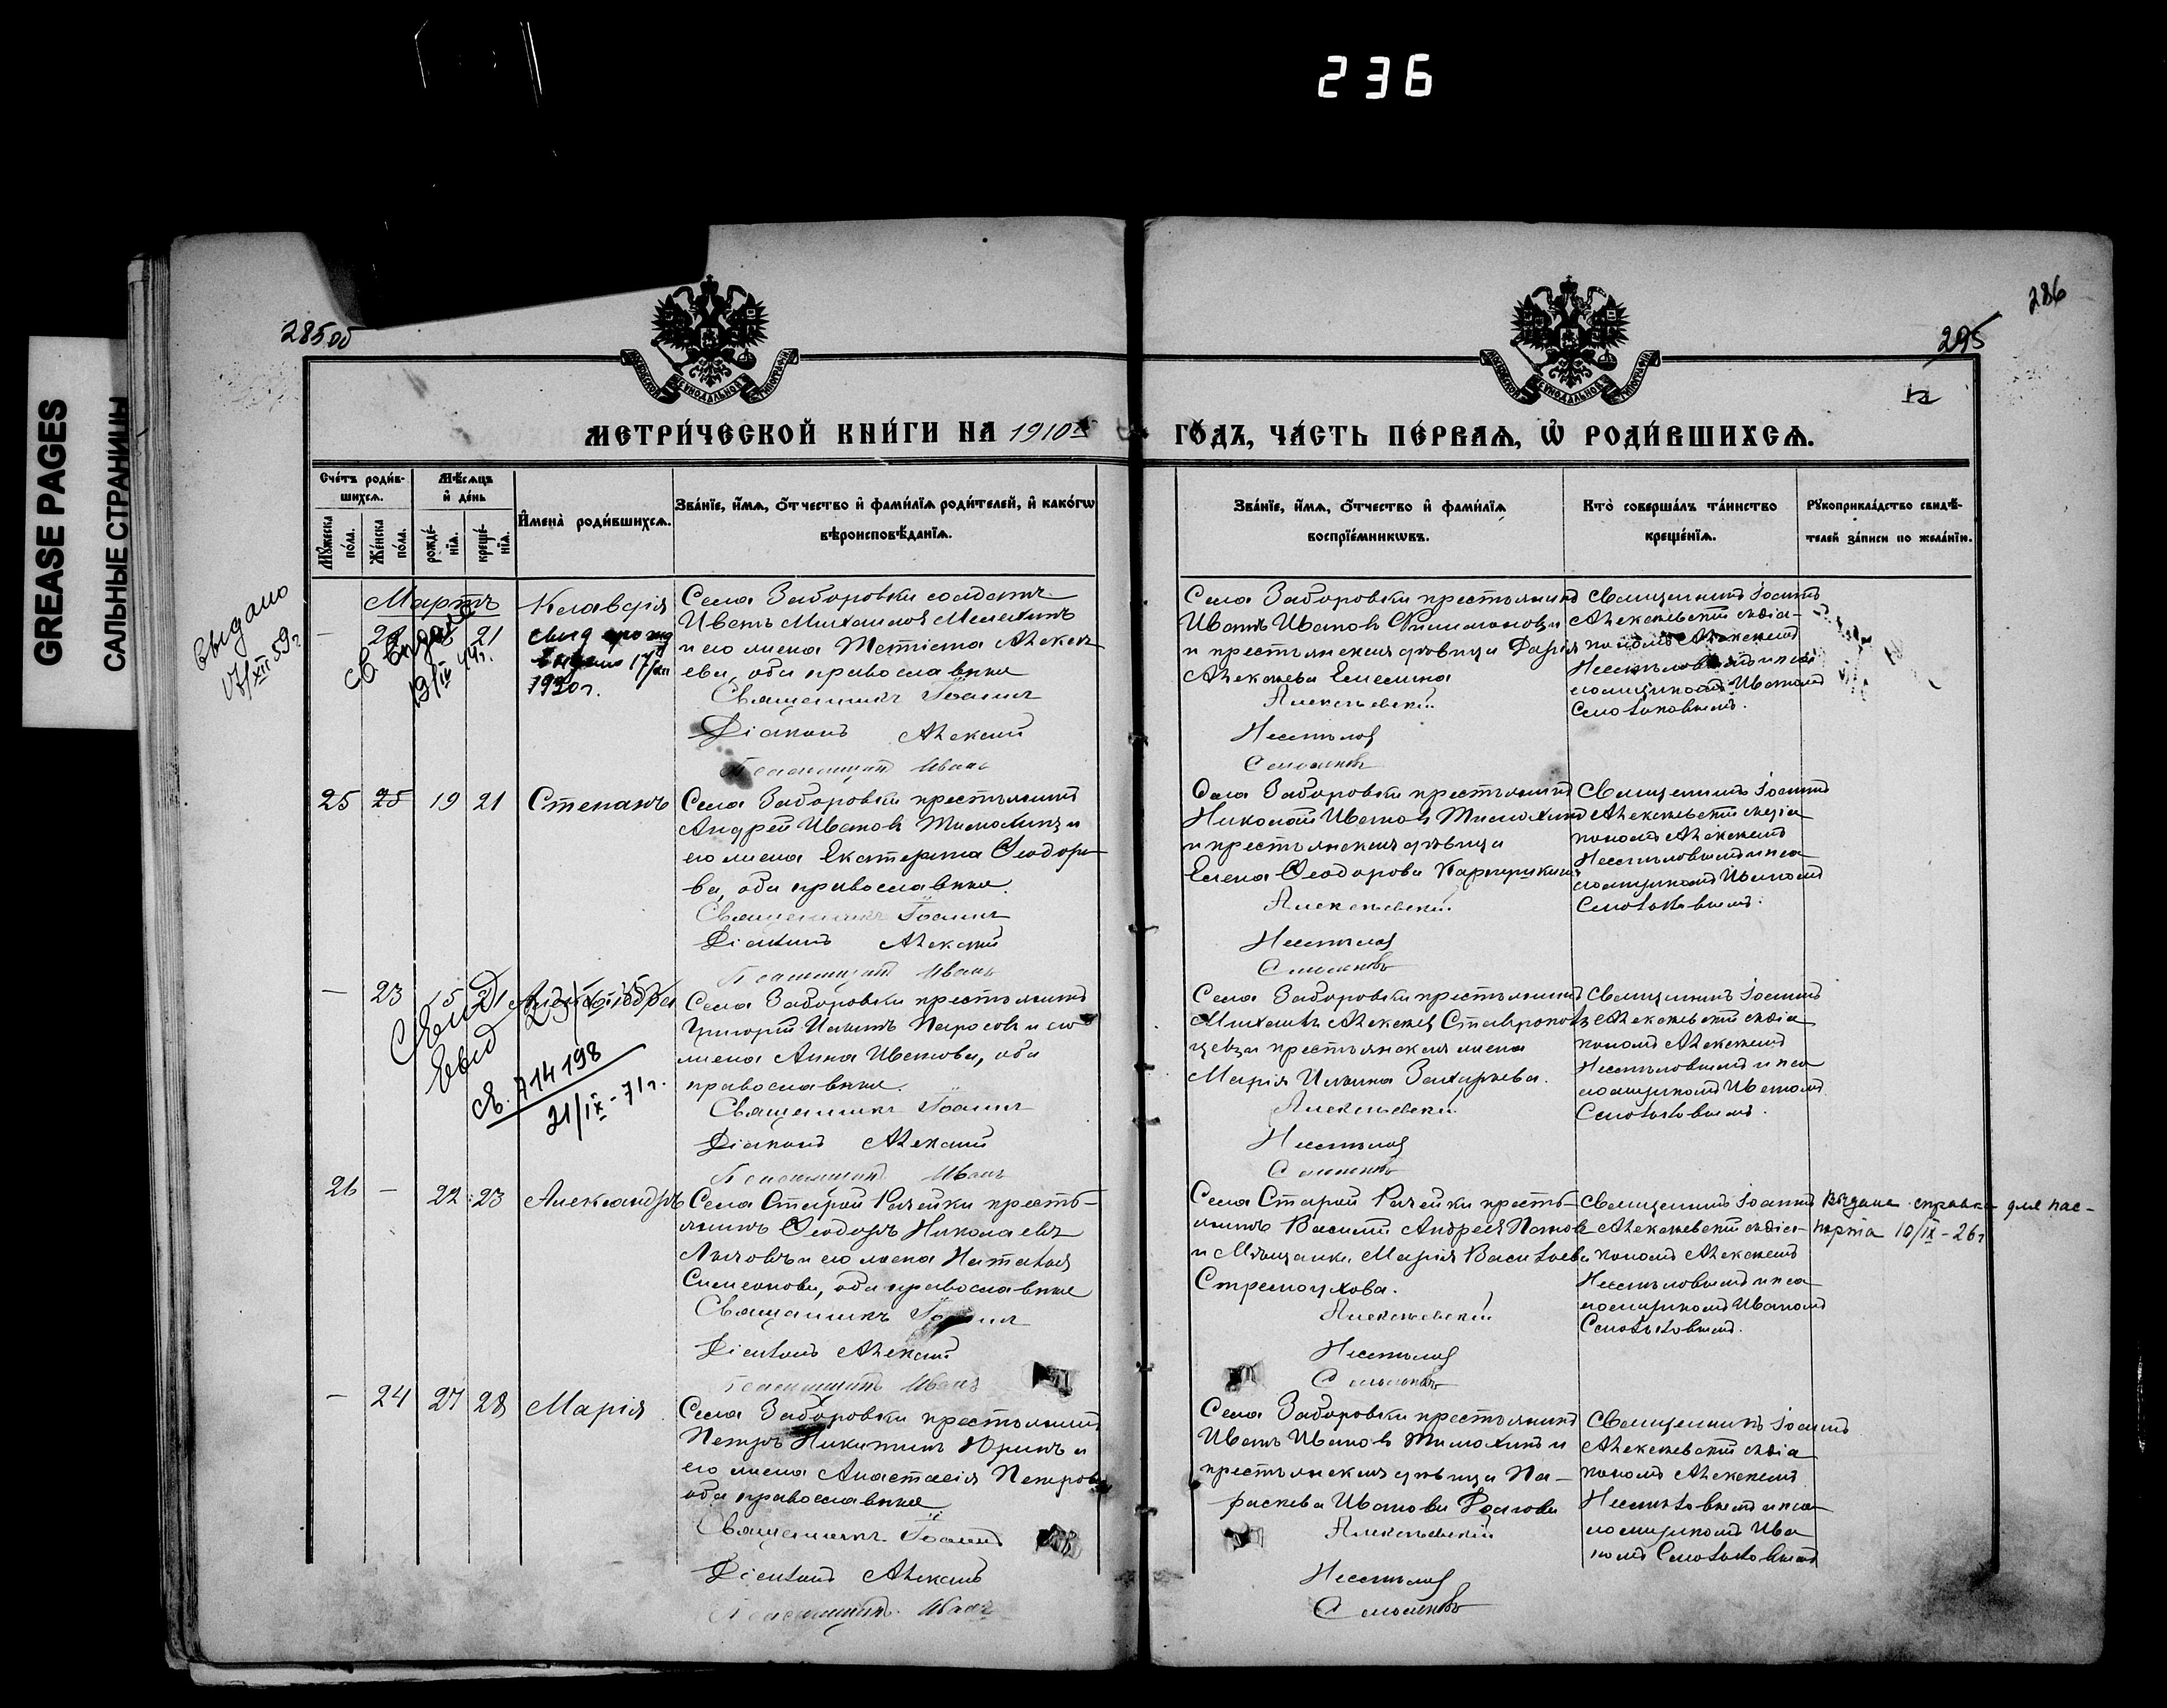 236
GREASE PAGES
САЛЬНЫЕ СТРАНИЦЫ
285об
286
295
МЕТРИ́ЧЕСКОЙ КНИ́ГИ НА 1910й
ГО́ДЪ, ЧА́СТЬ ПЕ́РВАѦ, Ѡ҆ РОДИ́ВШИХСѦ.
Сче́тъ роди́в-
шихсѧ.
Мѣ́сѧцъ
и҆ де́нь
Мꙋ́жеска
по́ла.
Же́нска
по́ла.
рожде́-
нїѧ.
креще́-
нїѧ.
И҆мена̀ роди́вшихсѧ.
Зва́нїе, и҆́мѧ, ѻ҆́тчество и҆ фами́лїѧ роди́телей, и҆ како́гѡ
вѣроисповѣ́данїѧ.
Зва́нїе, и҆́мѧ, ѻ҆́тчество и҆ фами́лїѧ
воспрїе́мникѡвъ.
Кто̀ соверша́лъ та́инство
креще́нїѧ.
Рꙋкоприкла́дство свидѣ́-
телей за́писи по жела́нїю.
Мартъ
выдано
17/XII 59г
— 21
св. выдано
19/IV 44г.
Клавдія
выдано 17/
1930г.
Села Заборовки солдатъ
Иванъ Михаиловъ
и его жена Алексѣ-
ева, оба православные
Священникъ Іоаннъ
Діаконъ Алексій
Псаломщикъ Иванъ
Села Заборовки крестьянинъ
Иванъ Ивановъ
и крестьянская дѣвица Дарія
Алексѣева
Алексѣевскій
Несмѣловъ
Смольковъ
Священникъ Іоаннъ
Алексѣевскій съ діа-
кономъ Алексѣемъ
Несмѣловымъ и пса-
ломщикомъ Иваномъ
Смольковымъ.
25 25 19 21 Степанъ
Села Заборовки крестьянинъ
Андрей Ивановъ Тимохинъ и
его жена Екатерина Ѳеодоро-
ва, оба православные.
Священникъ Іоаннъ
Діаконъ Алексій
Псаломщикъ Иванъ
Села Заборовки крестьянинъ
Николай Ивановъ Тимохинъ
и крестьянская дѣвица
Елена Ѳеодорова
Алексѣевскій
Несмѣловъ
Смольковъ
Священникъ Іоаннъ
Алексѣевскій съ діа-
кономъ Алексѣемъ
Несмѣловымъ и пса-
ломщикомъ Иваномъ
Смольковымъ.
— 23 21
св. А14198
21/IX-71г.
Села Заборовки крестьянинъ
Григорій и его
жена Анна Иванова, оба
православные.
Священникъ Іоаннъ
Діаконъ Алексій
Псаломщикъ Иванъ
Села Заборовки крестьянинъ
Михаилъ Алексѣевъ Ставрополь-
цевъ и крестьянская жена
Марія Ильина Захарьева.
Алексѣевскій
Несмѣловъ
Смольковъ
Священникъ Іоаннъ
Алексѣевскій съ діа-
кономъ Алексѣемъ
Несмѣловымъ и пса-
ломщикомъ Иваномъ
Смольковымъ.
26 — 22 23 Александръ
Села Старой Рачейки кресть-
янинъ Ѳеодоръ Николаевъ
и его жена Наталья
Симеонова, оба православные
Священникъ Іоаннъ
Діаконъ Алексій
Псаломщикъ Иванъ
Села Старой Рачейки кресть-
янинъ Василій Андреевъ Пановъ
и Мѣщанка Марія Васильева
Стремоухова.
Алексѣевскій
Несмѣловъ
Смольковъ
Священникъ Іоаннъ
Алексѣевскій съ діа-
кономъ Алексѣемъ
Несмѣловымъ и пса-
ломщикомъ Иваномъ
Смольковымъ.
Выдана справка для пас-
порта 10/IX-26г
— 24 27 28 Марія
Села Заборовки крестьянинъ
Петръ Никитинъ Юринъ и
его жена Анастасія Петрова
оба православные
Священникъ Іоаннъ
Діаконъ Алексій
Псаломщикъ Иванъ
Села Заборовки крестьянинъ
Иванъ Ивановъ Тимохинъ и
крестьянская дѣвица Па-
раскева Иванова
Алексѣевскій
Несмѣловъ
Смольковъ
Священникъ Іоаннъ
Алексѣевскій съ діа-
кономъ Алексѣемъ
Несмѣловымъ и пса-
ломщикомъ Ива-
номъ Смольковымъ